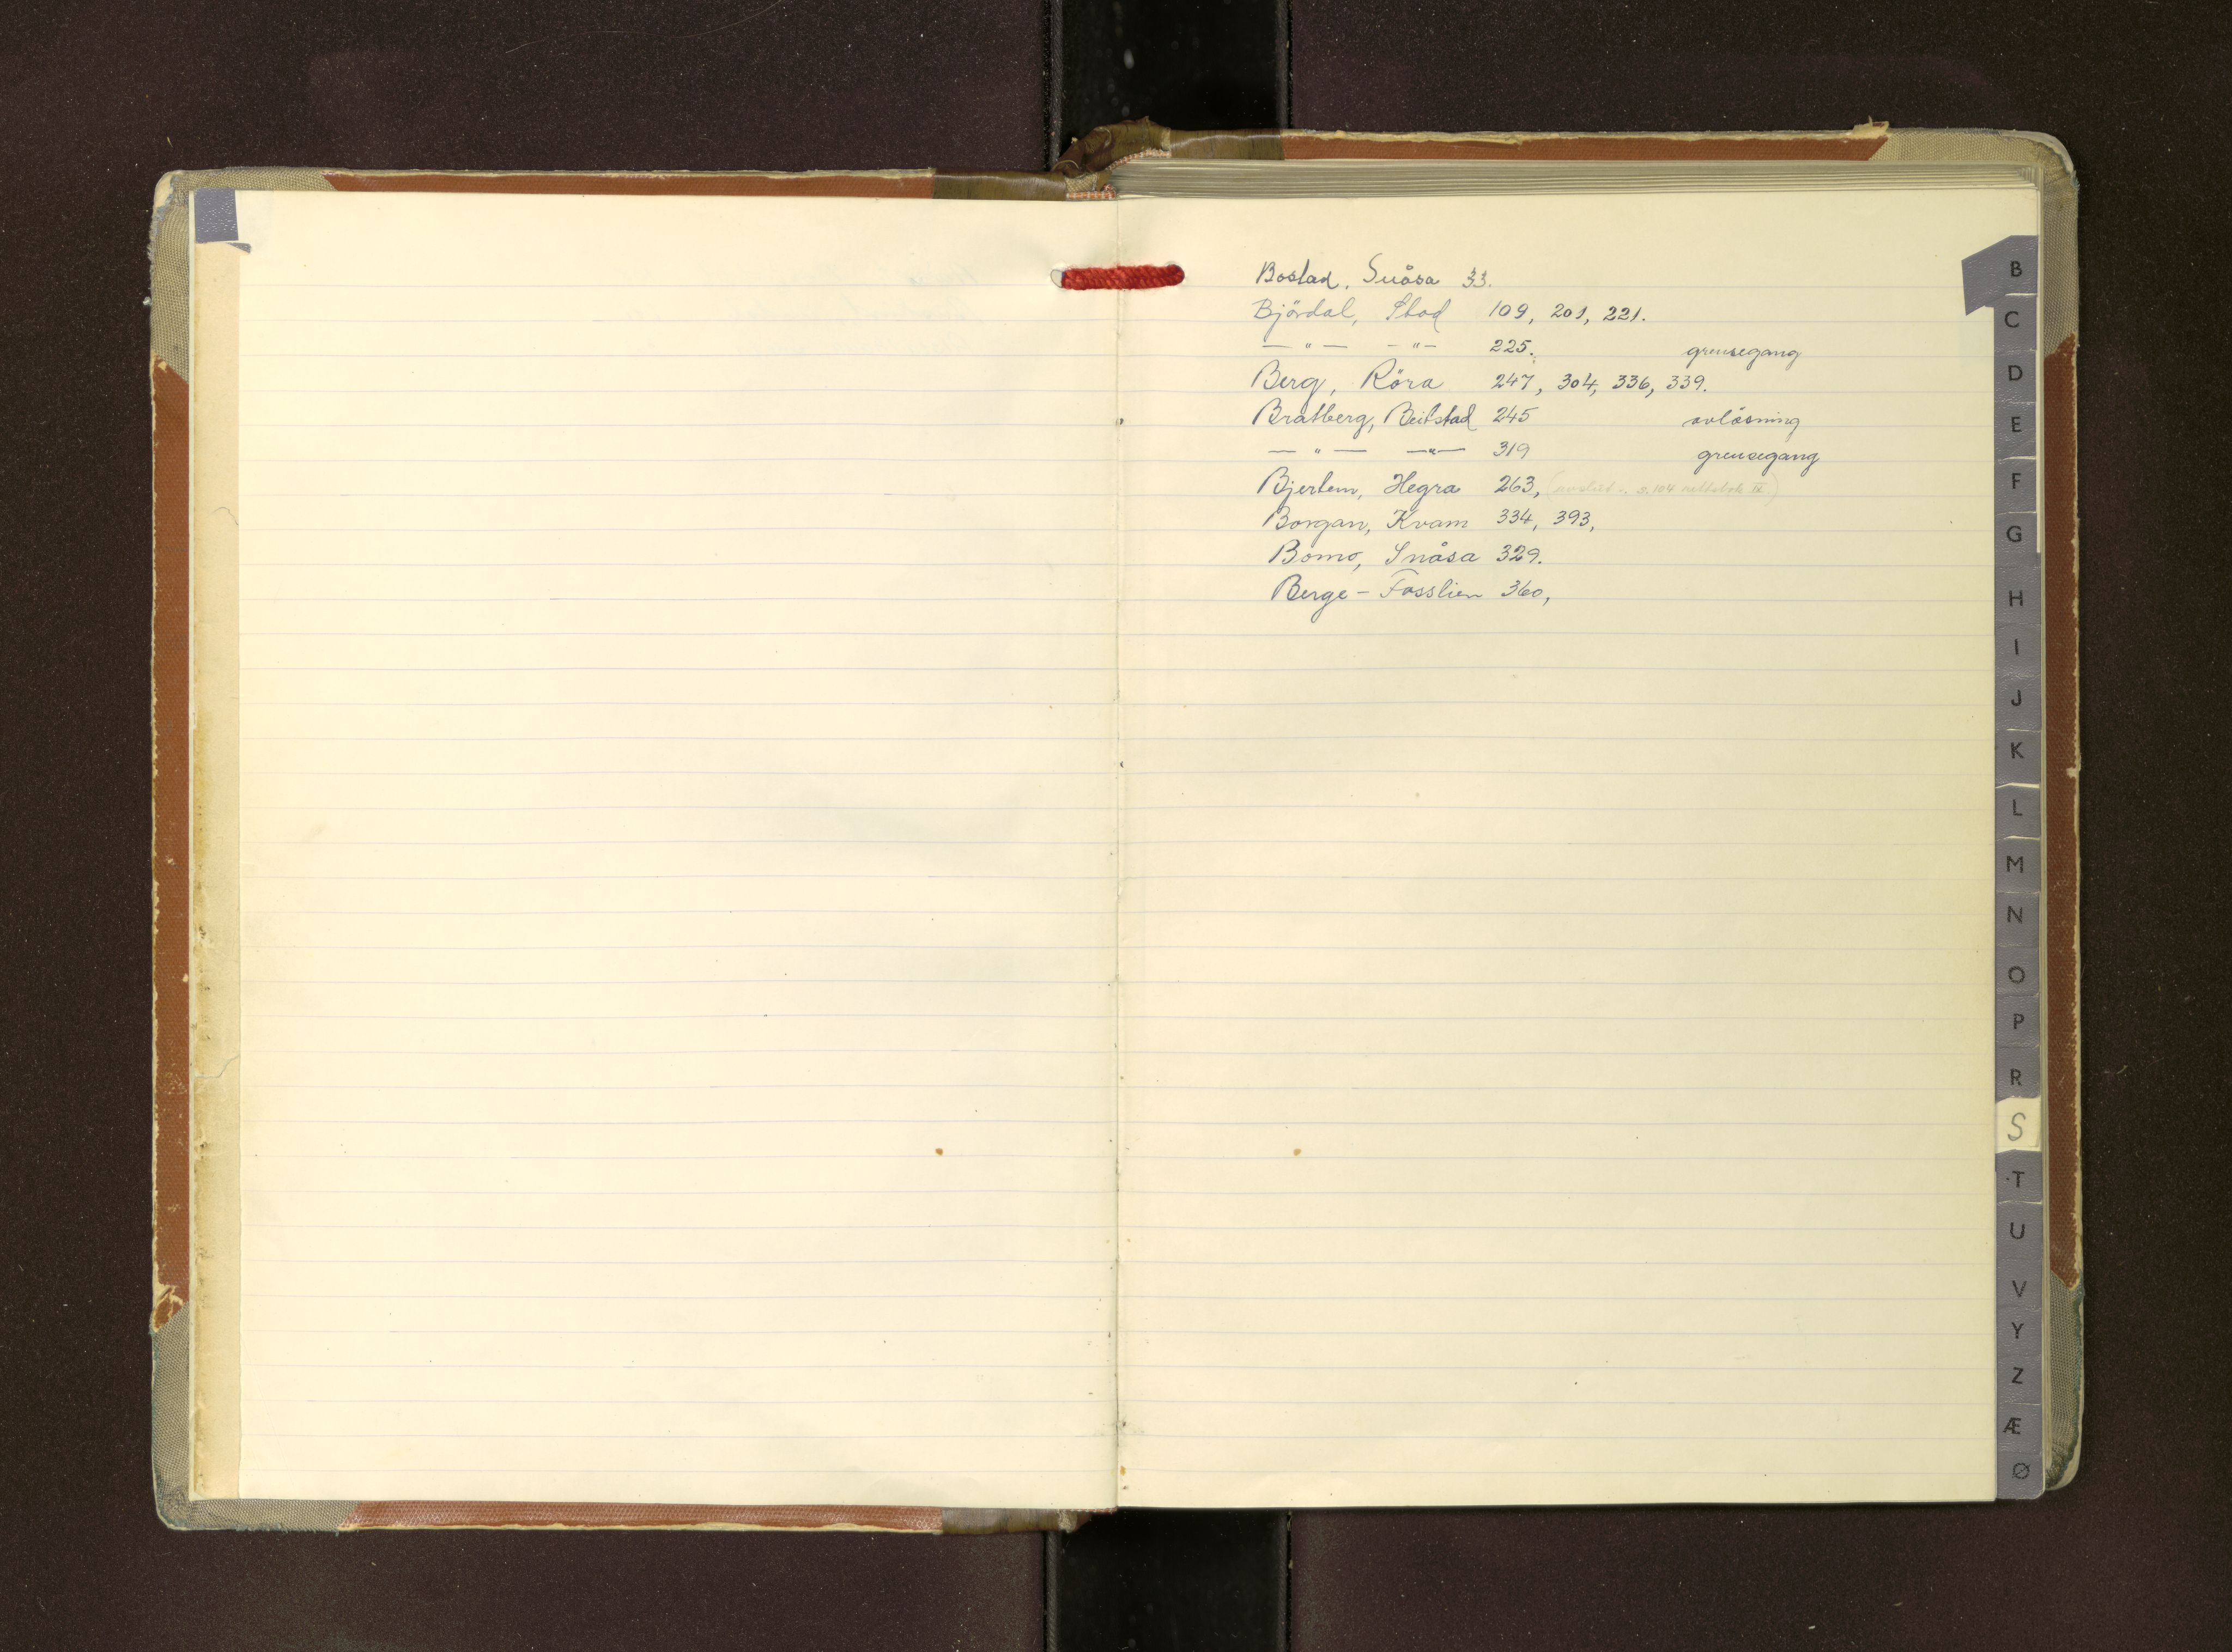 Bostad, Snåsa 33.
Björdal, Stod 109, 201, 221.
— " — - " - 225. grensegang
Berg, Röra 247, 304, 336, 339.
Bratberg, Beitstad 245 avlösning
— " — — " — 319 grensegang
Bjertem, Hegra 263, (avslutt s. 104 rettsbok IX.)
Borgan, Kvam 334, 393,
Bomo, Snåsa 329.
Berge - Fosslien 360,
B
C
D
E
F
G
H
I
J
K
L
M
N
O
P
R
S
T
U
V
Y
Z
Æ
Ø